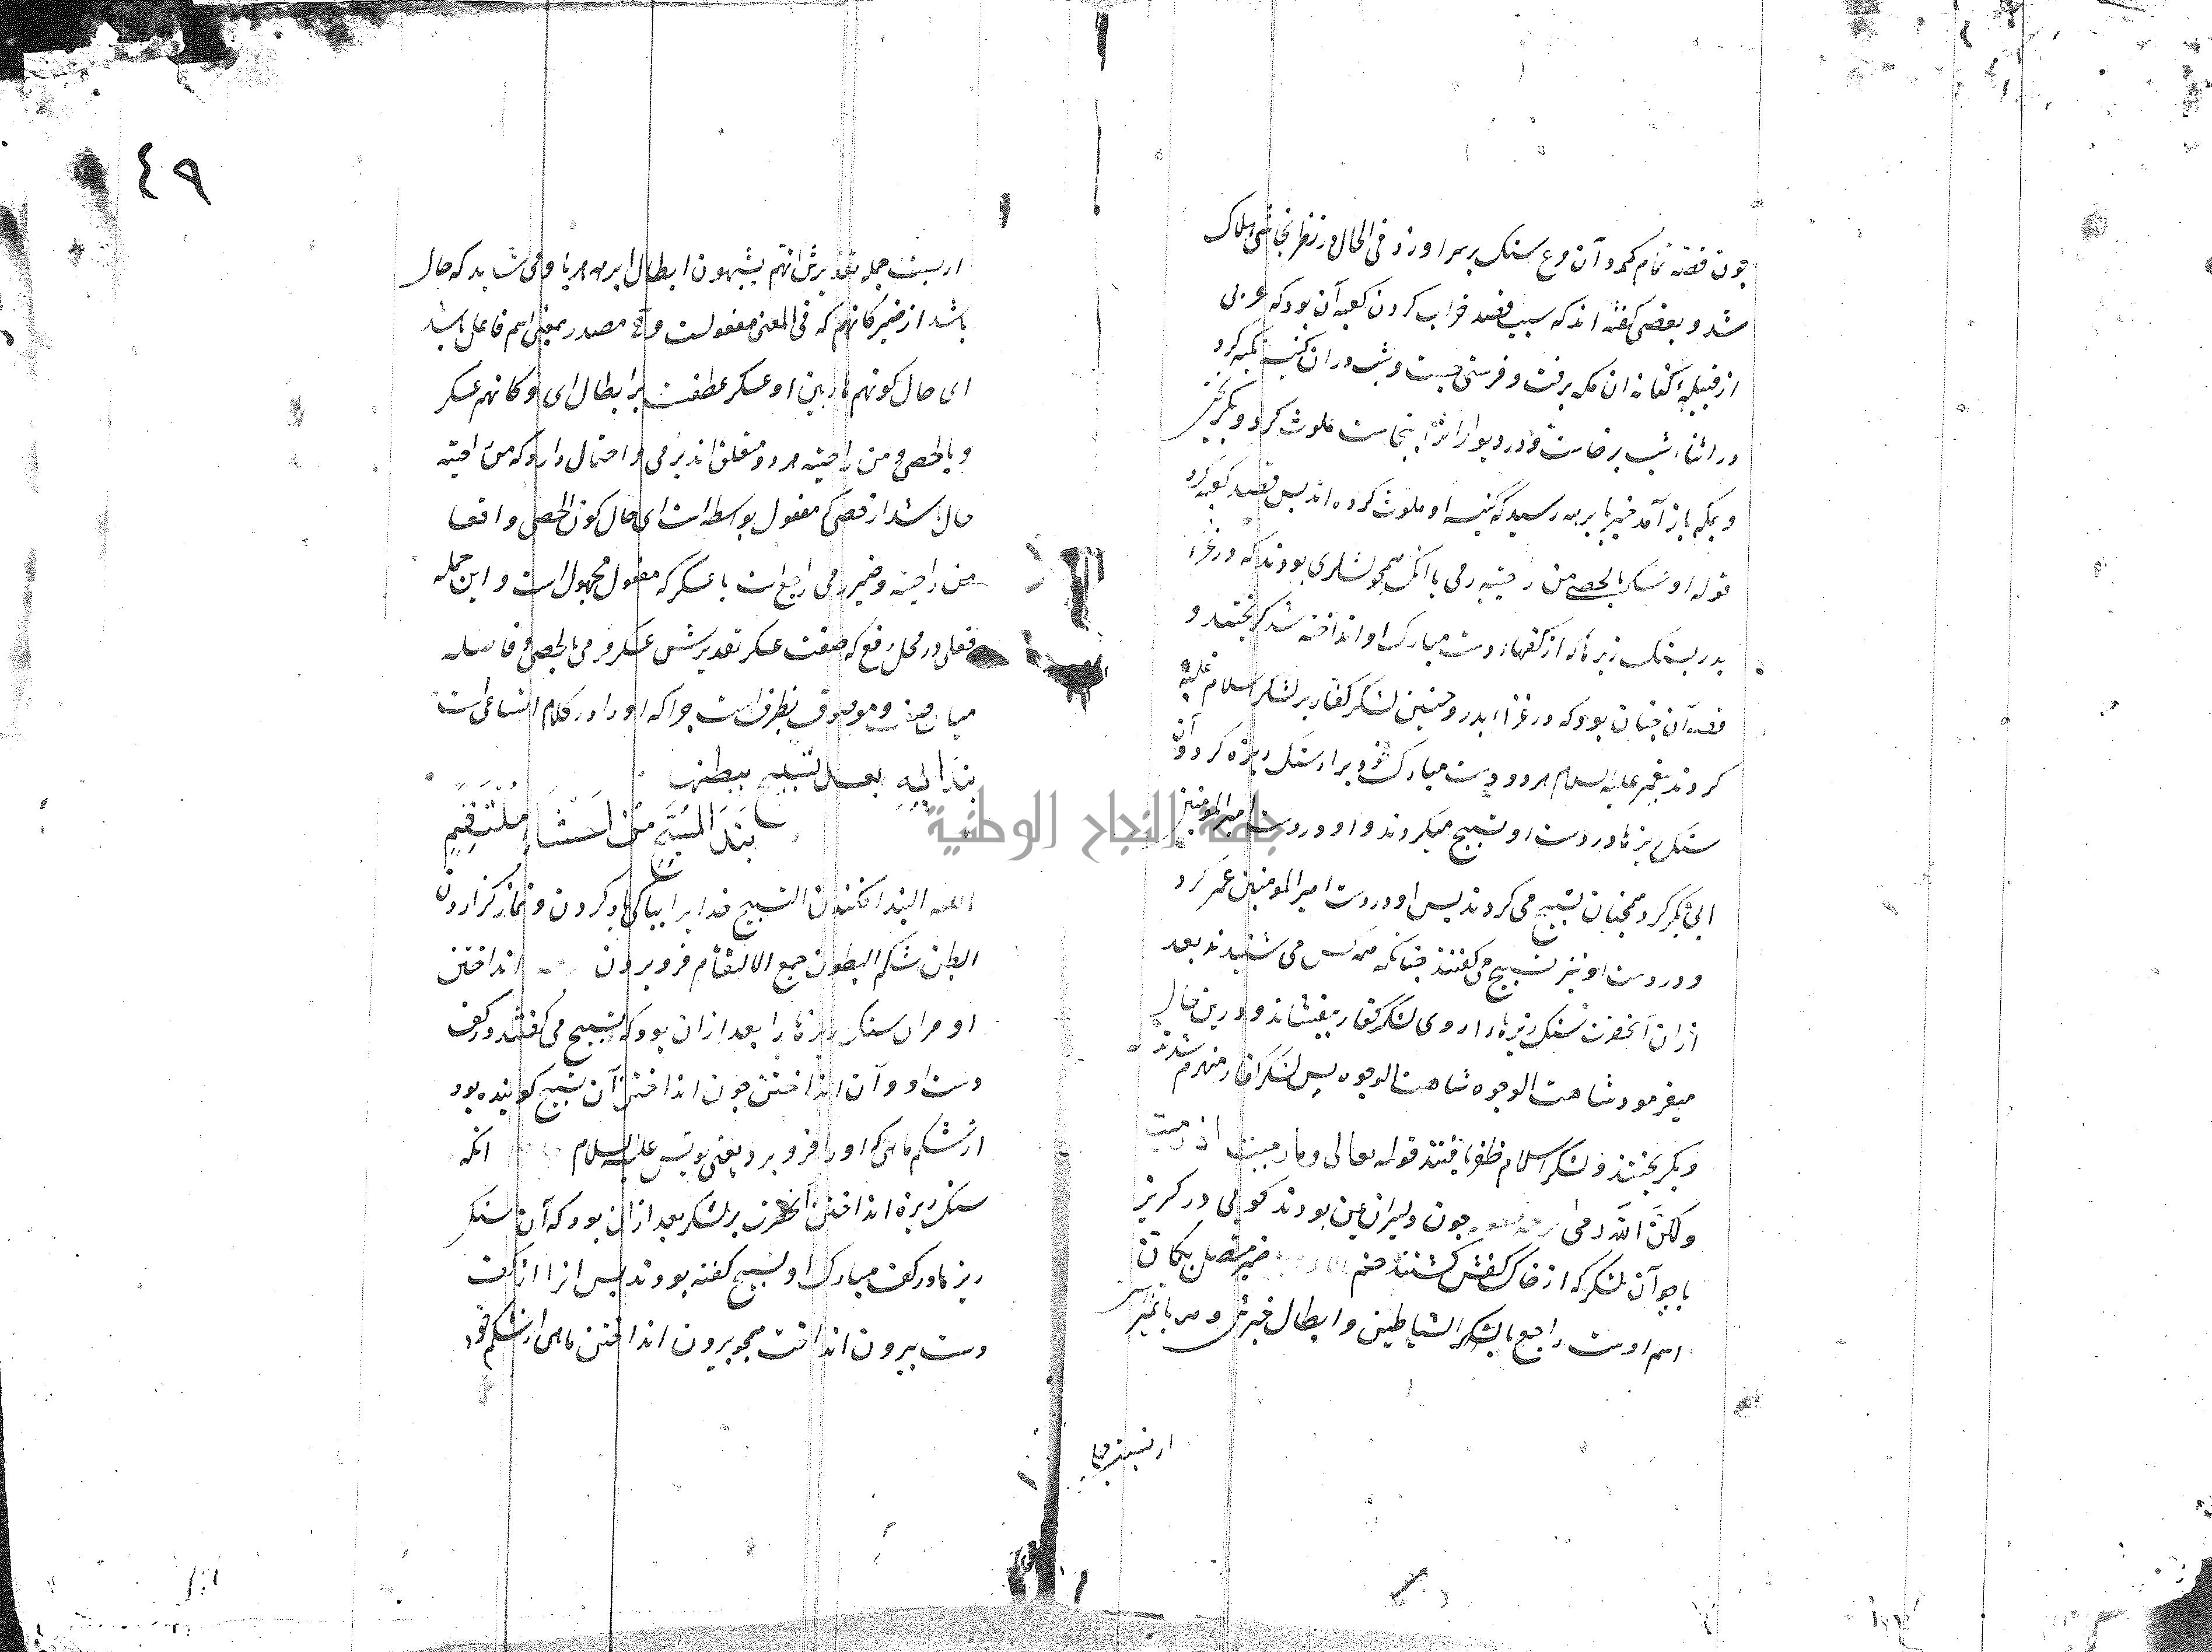 چون قصه تمام کرد آن مرغ سنک بر سر او زد فی الحال در نظر نجاشی هلاک
شد و بعضی کفته اند که سبب قصد خراب کردن کعبه آن بود که عربی
از قبیلهٔ کنانه ان مکه برفت و فرستی جست و شب دران کنیسه تکیه کرد
در اثناء شب برخاست و در و دیوار انرا بنجاست ملوث کرد و بکریخت
و بمکه باز آمد خبر بابرهه رسید که کنیسه او ملوث کرده اند پس قصد کعبه کرد
قوله او عسکر بالحصی من راحتیه رمی یا انک همچو لشکری بودند که در غزاء
بدر بسنک ریزها که از کفهاء دست مبارک او انداخته شد کریختند و
قصه آن چنان بود که در غزاء بدر و حنین لشکر کفار بر لشکر اسلام غلبه
کردند پیغمبر علیه السلام هر دو دست مبارک خود پر از سنک ریزه کرد و آن
سنک ریزها در دست او تسبیح میکردند و او در دست امیر المومنین
ابی بکر کرد همچنان تسبیح می کردند پس او در دست امیر المومنین عمر کرد
و در دست او نیز تسبیح می کفتند چنانکه همه کس می شنیدند بعد
ازان آنحضرت سنک ریزها را روی لشکر کفار بیفشاند و درین حال
میفرمود شاهت الوجوه شاهت الوجوه پس لشکر کفار منهزم شدند
و بکریختند و لشکر اسلام ظفر یافتند قوله تعالی وما رمیت اذ رمیت
ولکن الله رمی چون دلیران یمن بودند کویی در کریز
یا چو آن لشکر که از خاک کفش کشتند ضمیر متصل بکان
اسم اوست راجع بالشکر الشیاطین و ابطال خبرش
از نسبت جمله
٤٩
از نسبت جمله تقدیرش انهم یشبهون ابطال ابرهه هربا و می شاید که حال
باشد از ضمیر کانهم که فی المعنی مفعولست و مصدر بمعنی اسم فاعل باشد
ای حال کونهم هاربین او عسکر عطفست بر ابطال ای و کانهم عسکر
و بالحصی و من راحتیه هر دو متعلق اند برمی و احتمال دارد که من راحتیه
حال باشد از حصی که مفعول بواسطه است ای حال کون الحصی واقعا
من راحتیه و ضمیر رمی راجع است با عسکر که مفعول مجهول است و این جمله
فعلی در محل رفع که صفت عسکر تقدیرش عسکر رمی بالحصی و فاصله
میان صفت و موصوف بظرف است چرا که او را در کلام اتساعی است
نبذا به بعد تسبیح ببطنهما
نبذ المسبح من احشاء ملتقم
اللغه النبذ افکندن التسبیح خدا را بپاکی یاد کردن و نماز کزاردن
البطن شکم البطون جمع الالتقام فرو بردن انداختن
او مران سنک ریزها را بعد ازان بود که تسبیح می کفتند در کف
دست او و آن انداختن چون انداختن آن تسبیح کوینده بود
از شکم ماهی که او را فرو برد یعنی یونس علیه السلام انکه
سنک ریزه انداختن آنحضرت بر لشکر بعد ازان بود که آن سنک
ریزها در کف مبارک او تسبیح کفته بودند پس انرا از کف
دست بیرون انداخت همچو بیرون انداختن ماهی از شکم خود
جامعة النجاح الوطنية